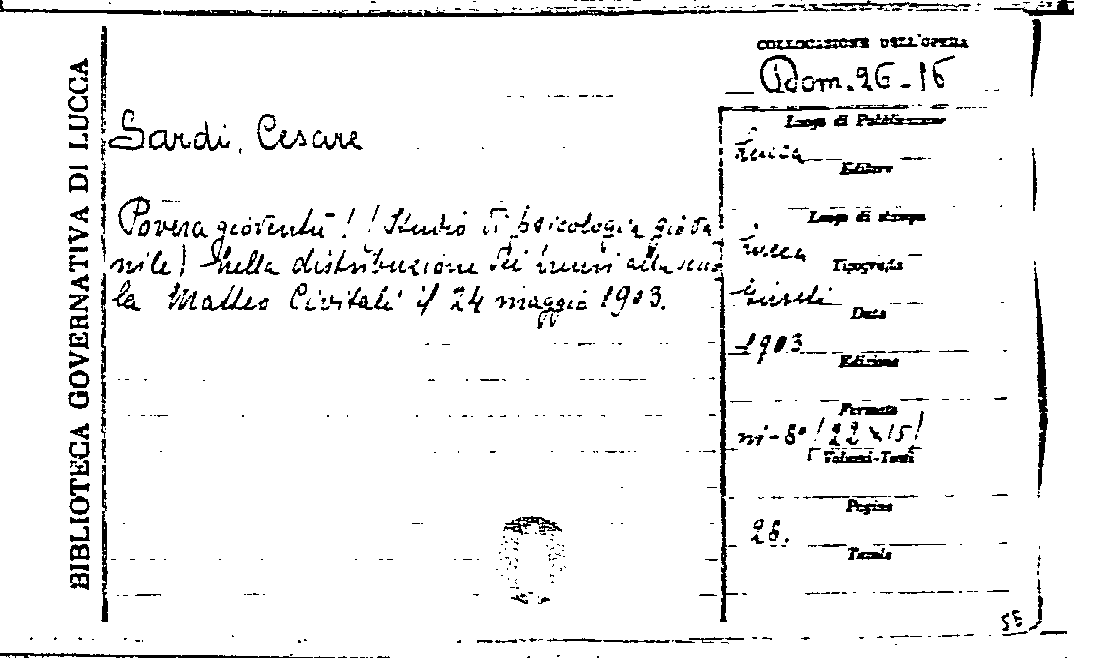 BIBLIOTECA GOVERNATIVA DI LUCCA
COLLOCAZIONE DELL'OPERA
Dom. 26-16
Sardi, Cesare
Povera gioventù! (Studio di psicologia giova
nile) Nella distribuzione dei premi alla scuo
la Matteo Civitali il 24 maggio 1903.
Luogo di Pubblicazione
Lucca
Editore
Luogo di stampa
Lucca
Tipografia
Giusti
Data
1903
Edizione
Formato
in-8° (22x15)
Volumi-Tomi
Pagine
26.
Tavole